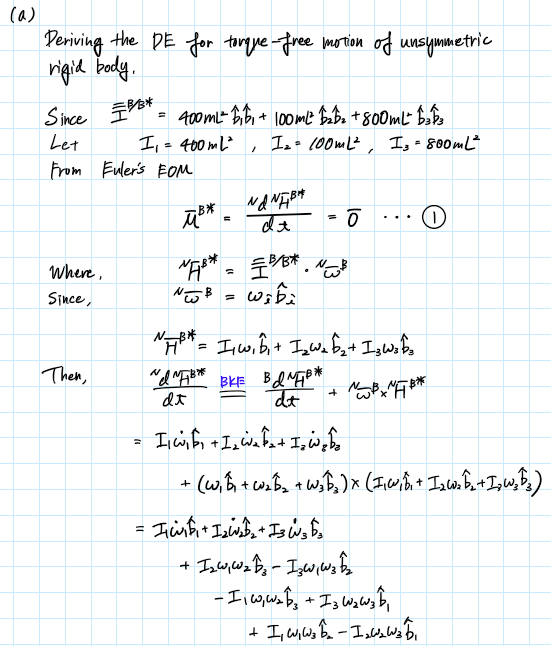 (a)
Deriving the DE for torque-free motion of unsymmetric
rigid body.
Since I̿^{B/B*} = 400mL² b̂₁b̂₁ + 100mL² b̂₂b̂₂ + 800mL² b̂₃b̂₃
Let I₁ = 400mL² , I₂ = 100mL² , I₃ = 800mL²
From Euler's EOM
M̄^{B*} = ᴺd ᴺH̄^{B*} / dt = 0̄ ··· ①
Where, ᴺH̄^{B*} = I̿^{B/B*} · ᴺω̄^B
Since, ᴺω̄^B = ωᵢ b̂ᵢ
ᴺH̄^{B*} = I₁ω₁b̂₁ + I₂ω₂b̂₂ + I₃ω₃b̂₃
Then, ᴺd ᴺH̄^{B*} / dt BKE = ᴮd ᴺH̄^{B*} / dt + ᴺω̄^B × ᴺH̄^{B*}
= I₁ω̇₁b̂₁ + I₂ω̇₂b̂₂ + I₃ω̇₃b̂₃
+ (ω₁b̂₁ + ω₂b̂₂ + ω₃b̂₃) × (I₁ω₁b̂₁ + I₂ω₂b̂₂ + I₃ω₃b̂₃)
= I₁ω̇₁b̂₁ + I₂ω̇₂b̂₂ + I₃ω̇₃b̂₃
+ I₂ω₁ω₂b̂₃ − I₃ω₁ω₃b̂₂
− I₁ω₁ω₂b̂₃ + I₃ω₂ω₃b̂₁
+ I₁ω₁ω₃b̂₂ − I₂ω₂ω₃b̂₁